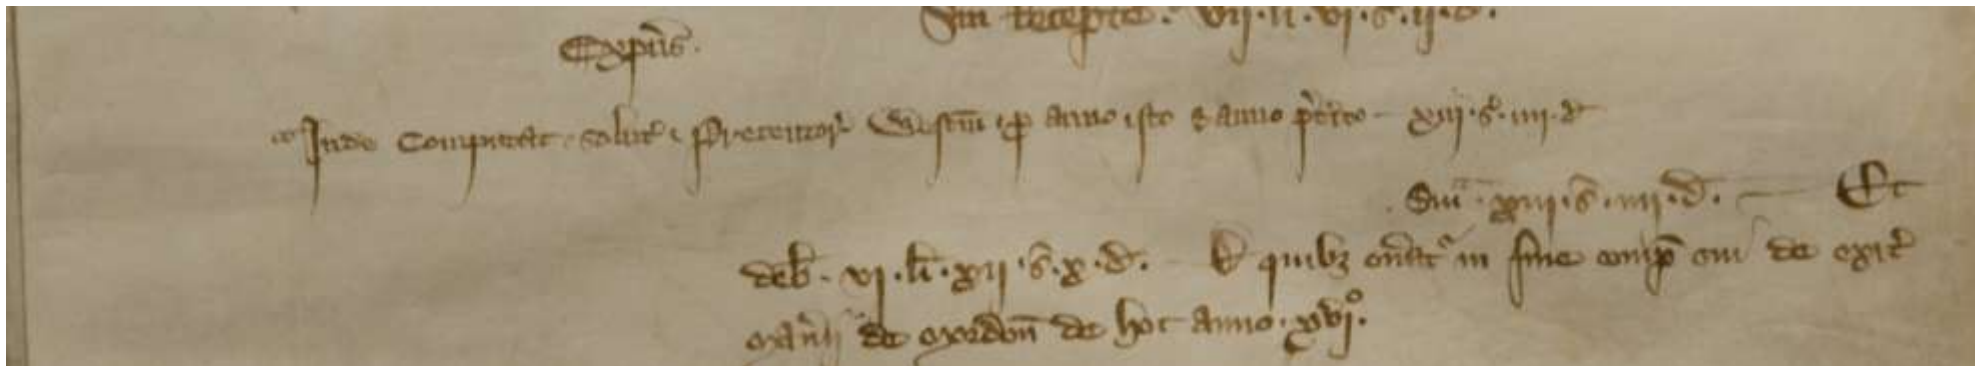 Sm̄ Recepte. vij. li. vj. s. ij. d.
Expn̄s.
Inde Computat. solut' Precentori Westm̄ p anno isto & anno p̃terito xiij. s. iiij. d
Sm̄. xiij. s. iiij. d. Et
deb̄. vj. li. xij. s. x. d. D quibȝ on̄at' in fine comp̄ sui de exit'
Man̄ij de Mordon̄ de hoc anno. xvjº.